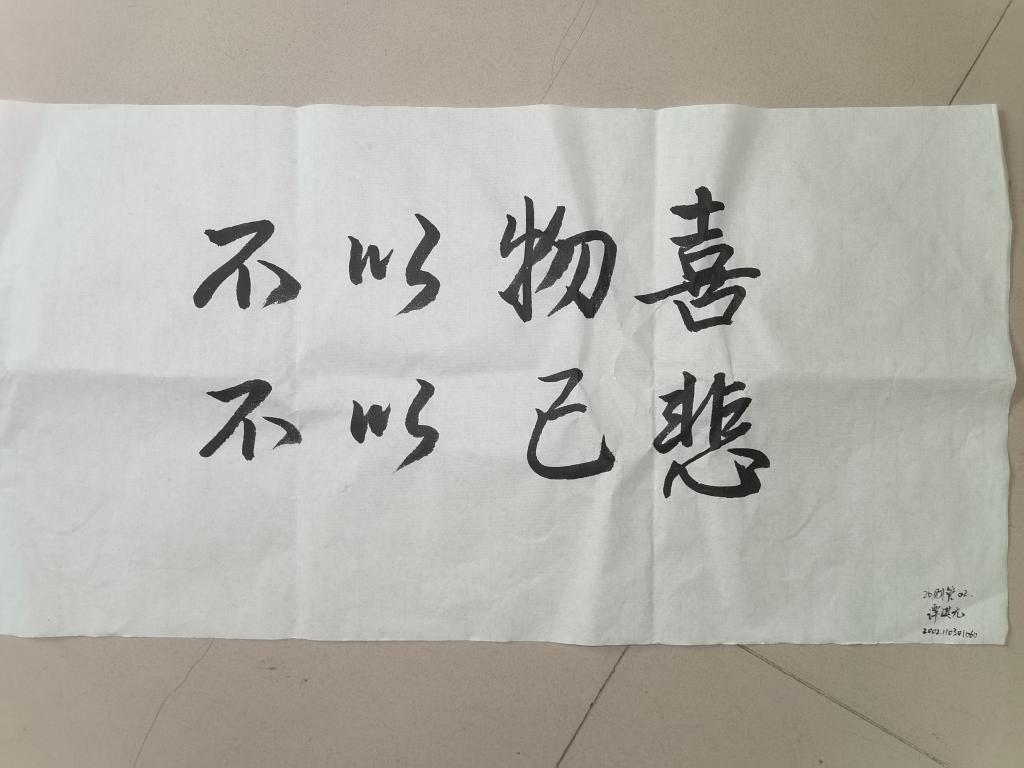 不以物喜
不以己悲
20财管02.
谭淇元
2002110301060